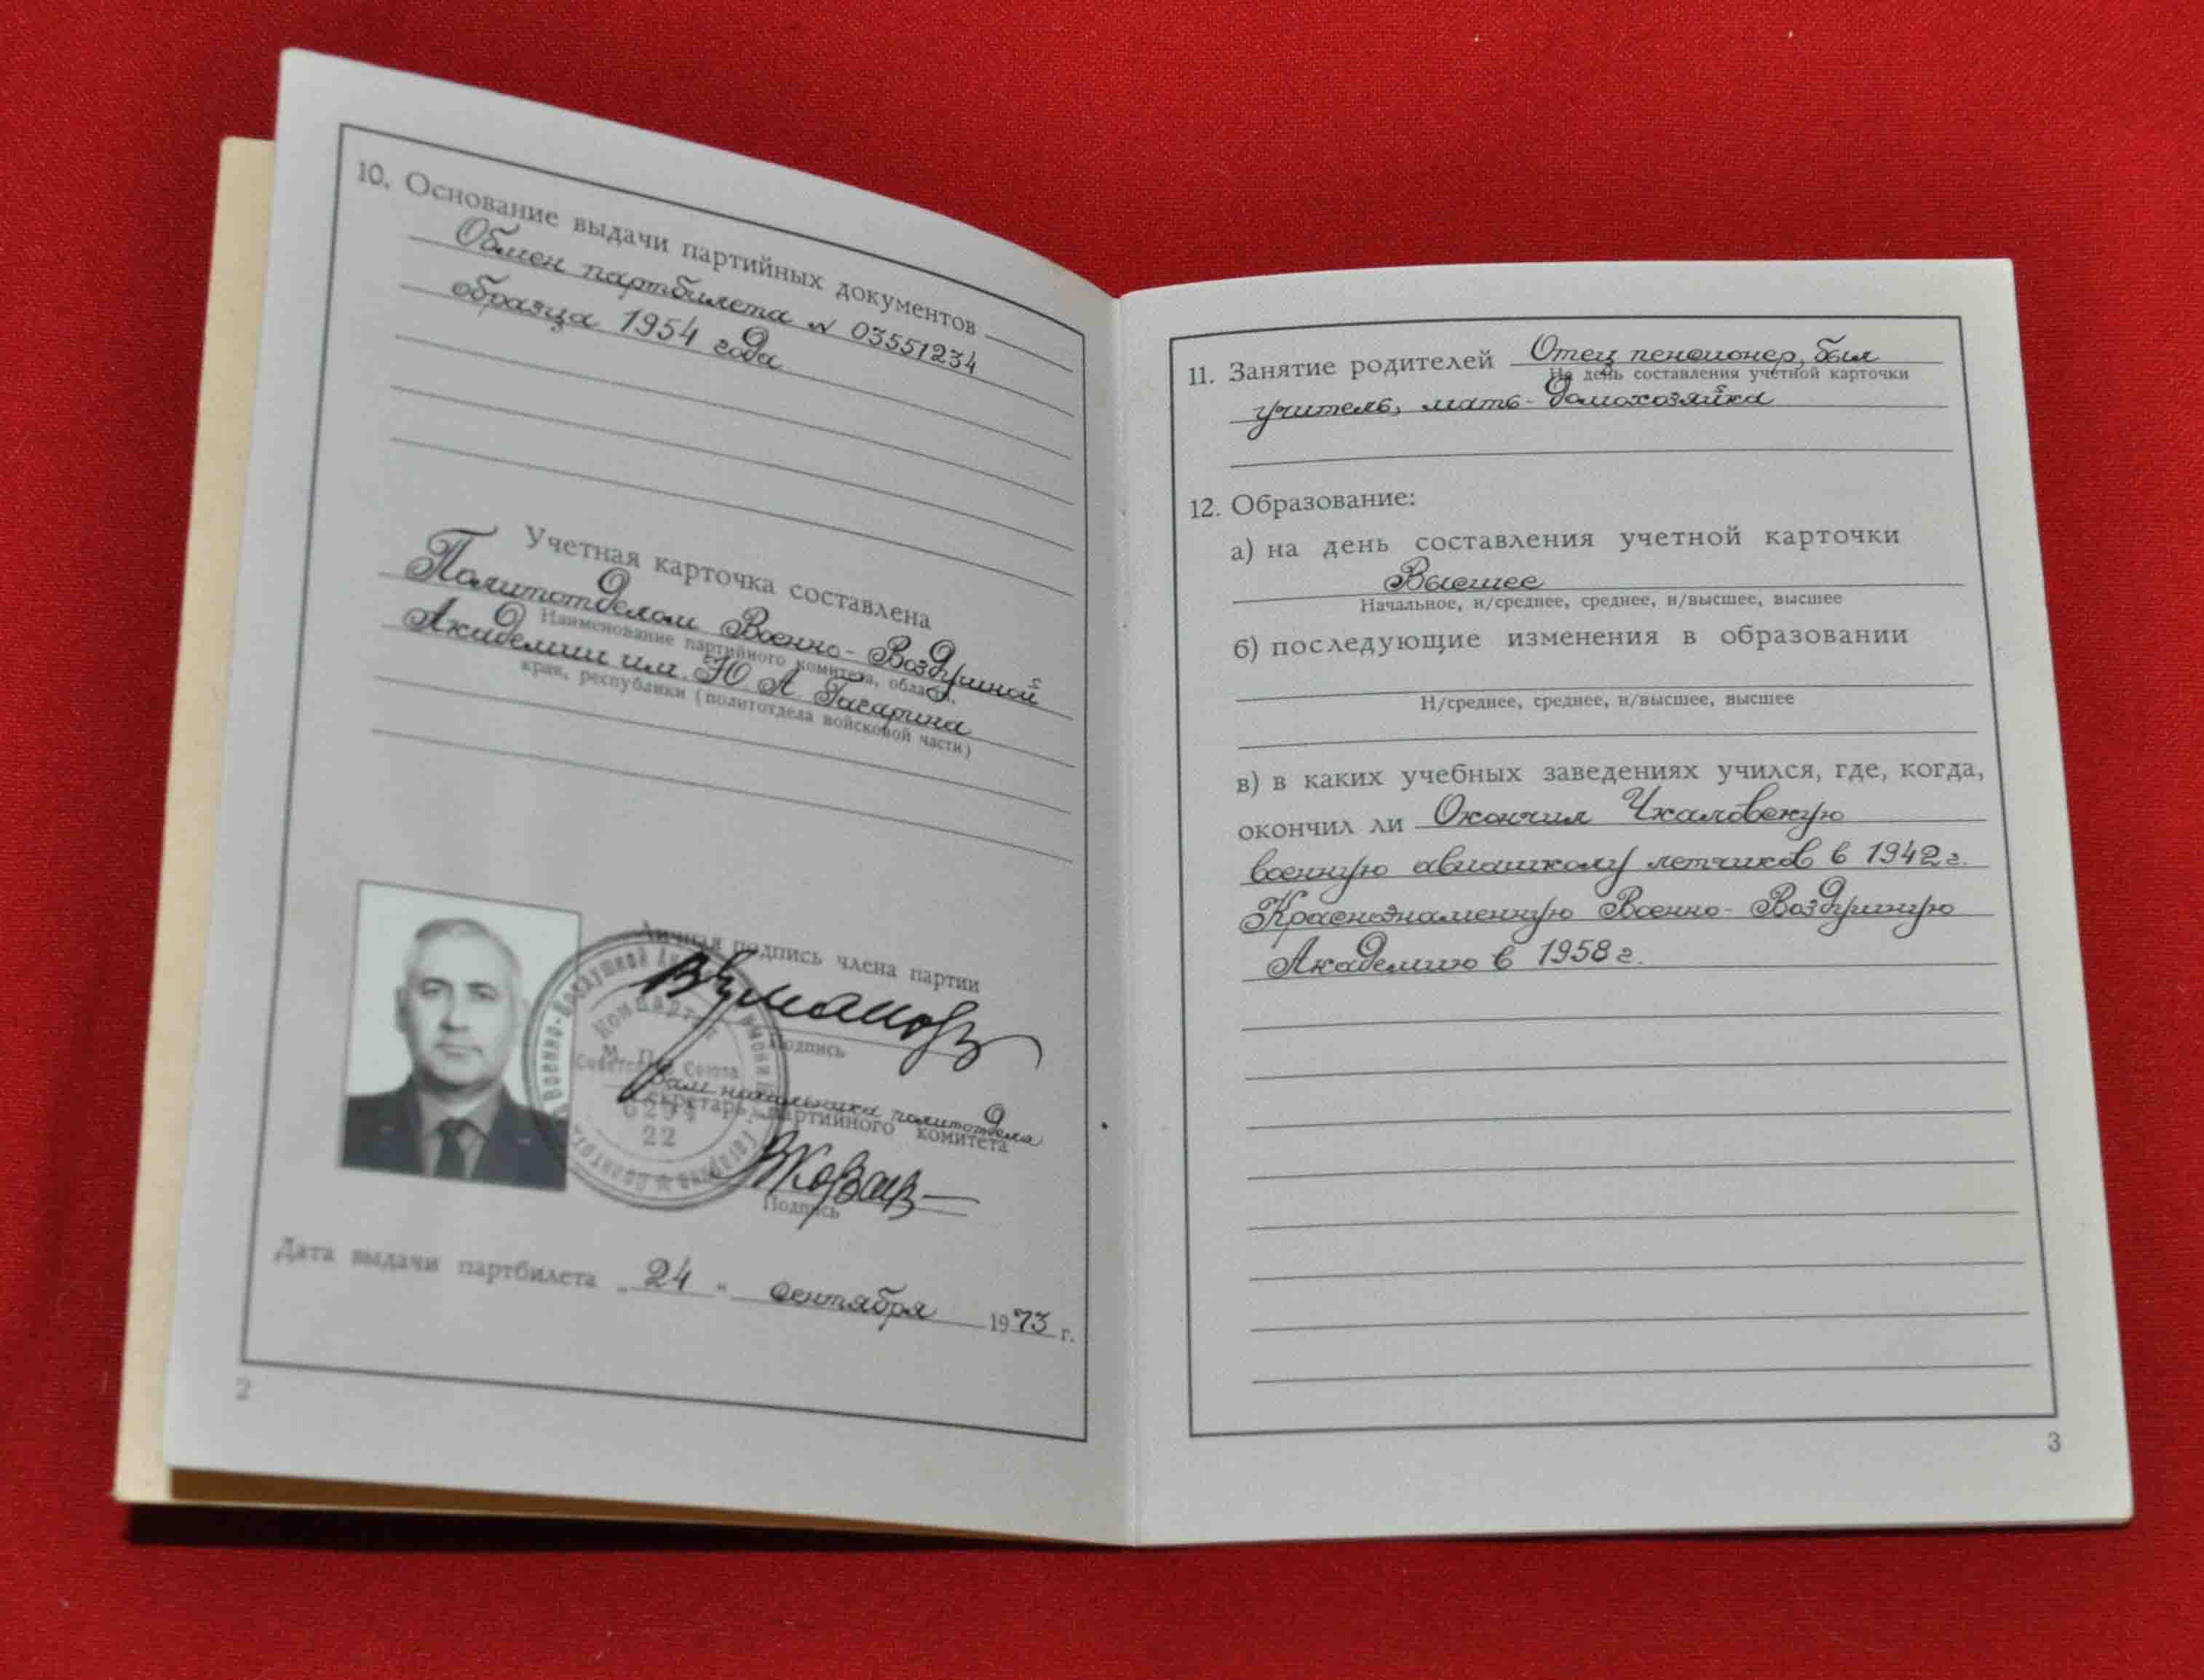 10. Основание выдачи партийных документов
Обмен партбилета № 03551234
образца 1954 года
Учетная карточка составлена
Политотделом Военно-Воздушной
Наименование партийного комитета, области,
Академии им. Ю. А. Гагарина
края, республики (политотдела войсковой части)
Личная подпись члена партии
Подпись
М. П.
Зам начальника политотдела
Секретарь партийного комитета
Подпись
Военно-Воздушной
Компартия
Советского Союза
22
Дата выдачи партбилета „24" сентября 1973 г.
2
11. Занятие родителей Отец пенсионер, был
На день составления учетной карточки
учитель, мать- домохозяйка
12. Образование:
а) на день составления учетной карточки
Высшее
Начальное, н/среднее, среднее, н/высшее, высшее
б) последующие изменения в образовании
Н/среднее, среднее, н/высшее, высшее
в) в каких учебных заведениях учился, где, когда,
окончил ли Окончил Чкаловскую
военную авиашколу летчиков в 1942 г.
Краснознаменную Военно-Воздушную
Академию в 1958 г.
3